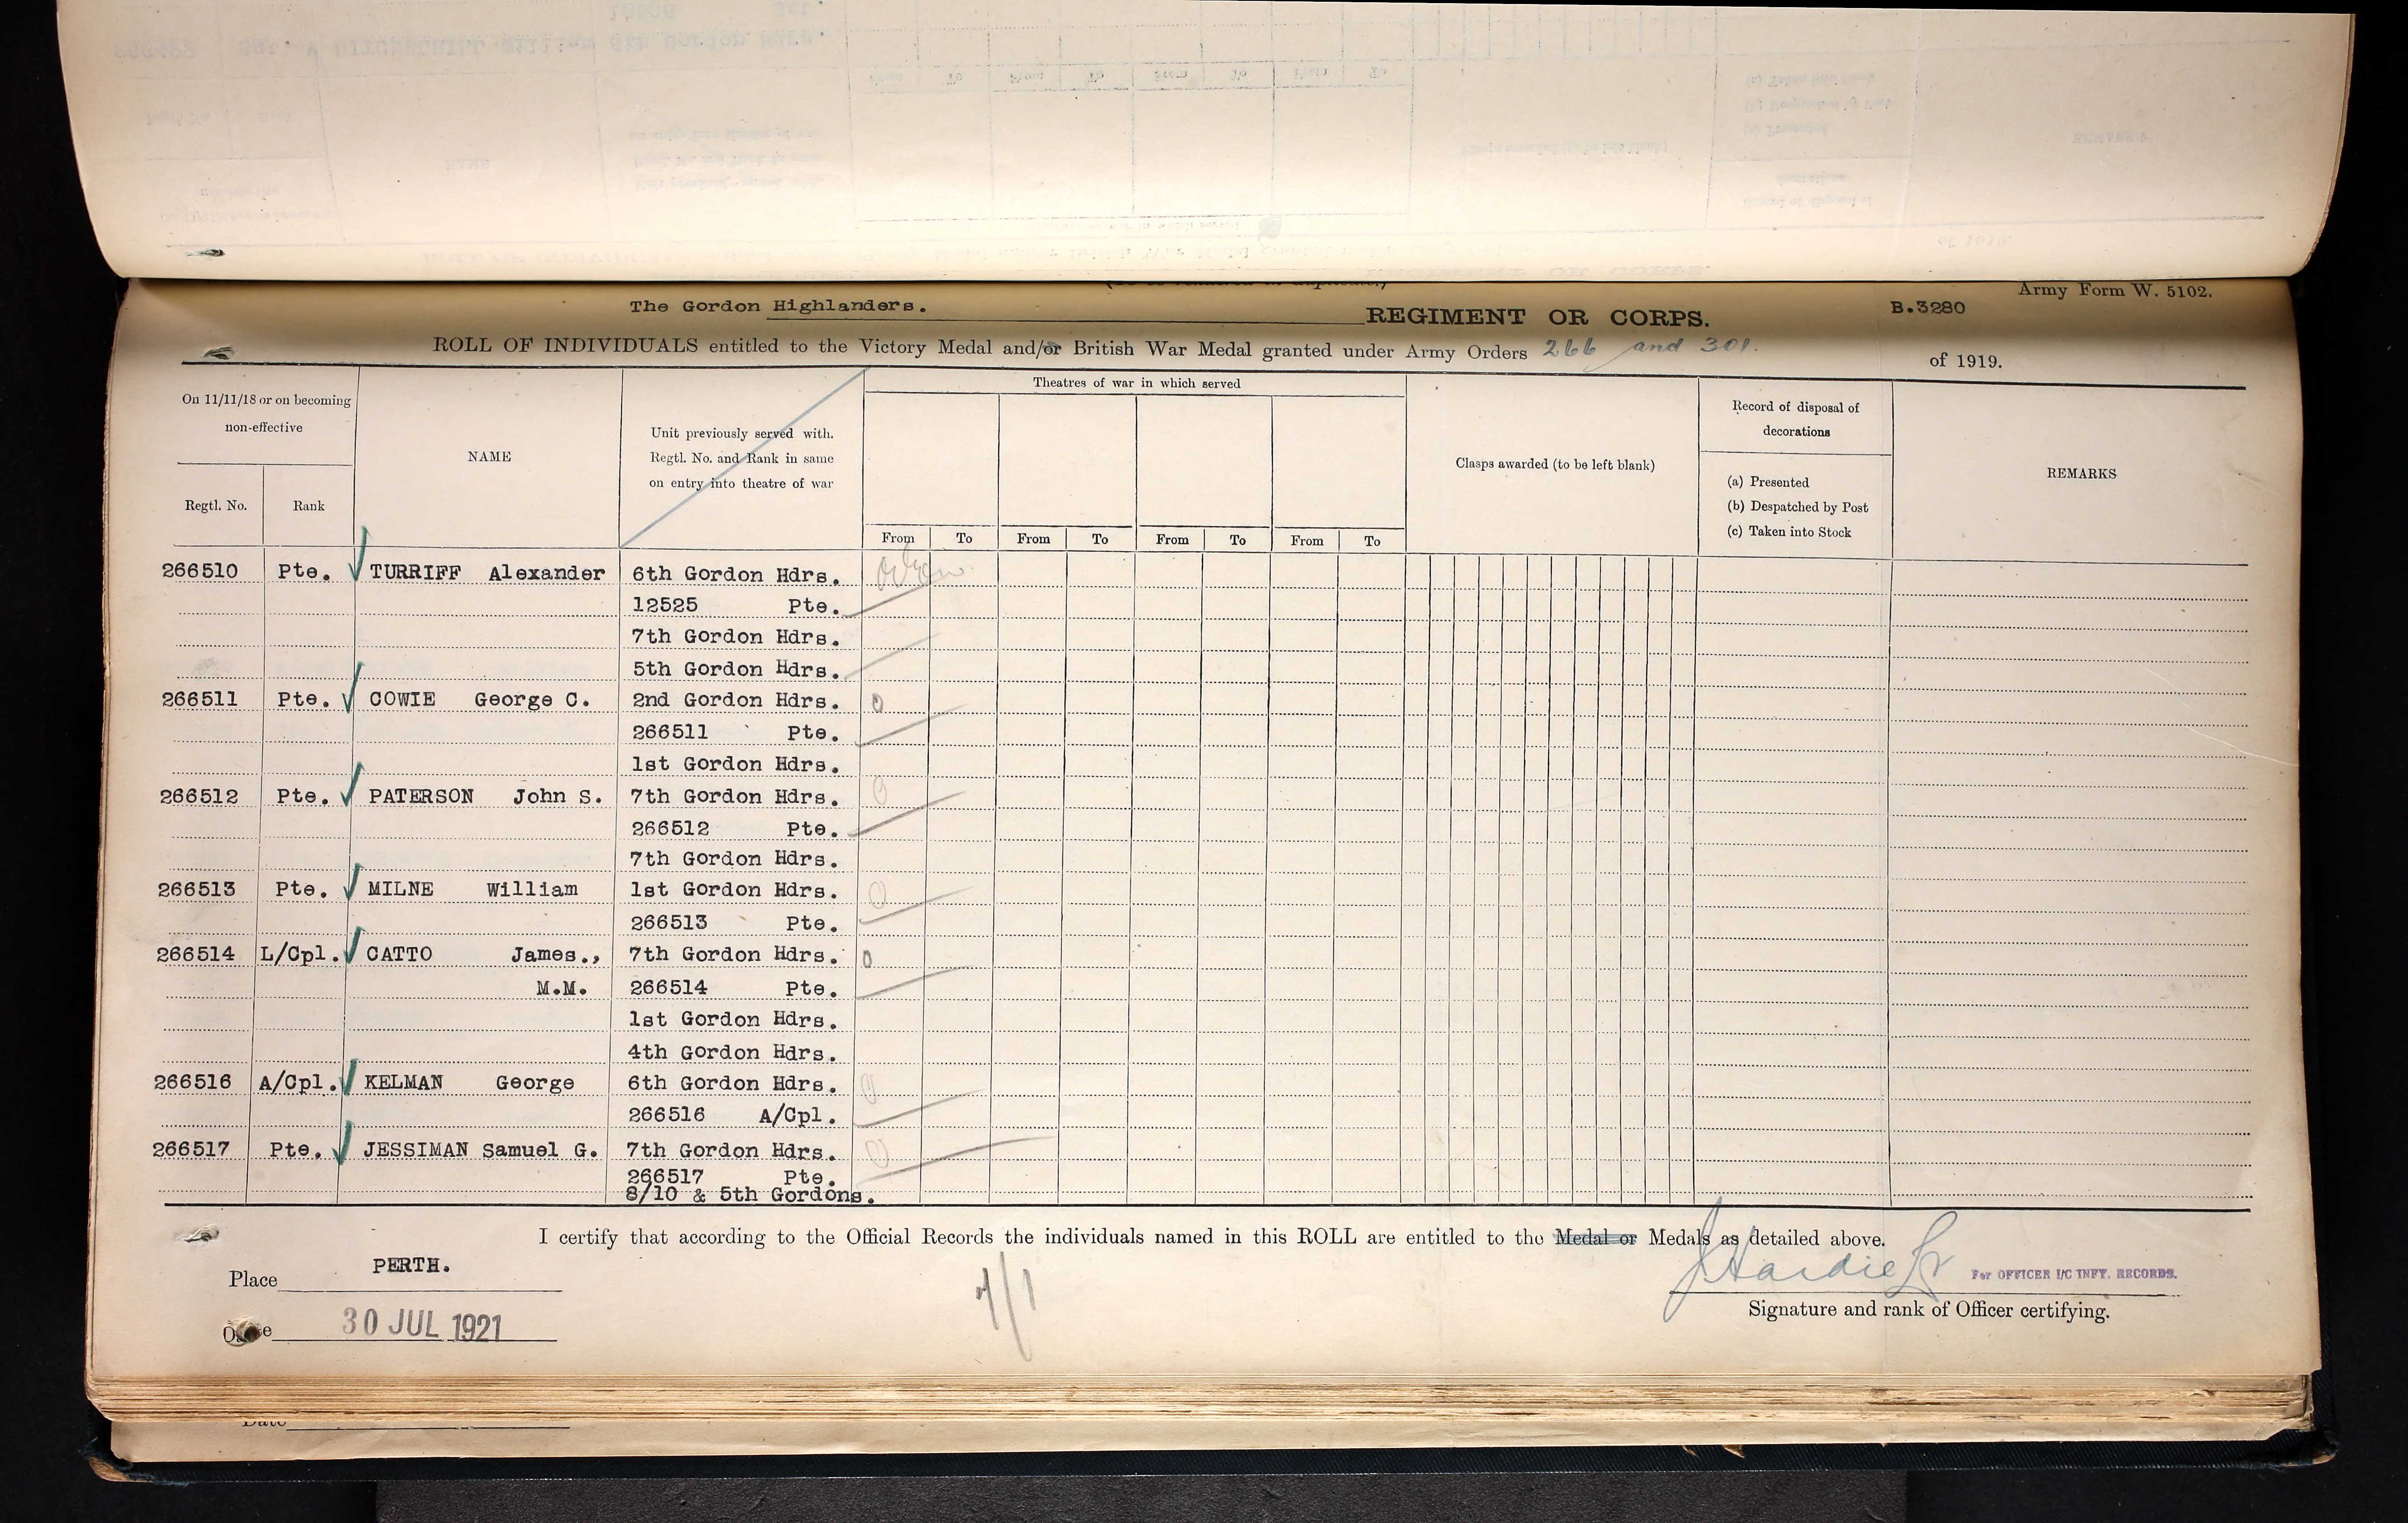 Army Form W. 5102.
The Gordon Highlanders. REGIMENT OR CORPS. B.3280
ROLL OF INDIVIDUALS entitled to the Victory Medal and/or British War Medal granted under Army Orders 266 and 301. of 1919.
On 11/11/18 or on becoming non-effective
Regtl. No. Rank
NAME
Unit previously served with.
Regtl. No. and Rank in same
on entry into theatre of war
Theatres of war in which served
From To From To From To From To
Clasps awarded (to be left blank)
Record of disposal of
decorations
(a) Presented
(b) Despatched by Post
(c) Taken into Stock
REMARKS
266510 Pte. TURRIFF Alexander 6th Gordon Hdrs.
12525 Pte.
7th Gordon Hdrs.
5th Gordon Hdrs.
266511 Pte. COWIE George C. 2nd Gordon Hdrs.
266511 Pte.
1st Gordon Hdrs.
266512 Pte. PATERSON John S. 7th Gordon Hdrs.
266512 Pte.
7th Gordon Hdrs.
266513 Pte. MILNE William 1st Gordon Hdrs.
266513 Pte.
266514 L/Cpl. CATTO James., 7th Gordon Hdrs.
M.M. 266514 Pte.
1st Gordon Hdrs.
4th Gordon Hdrs.
266516 A/Cpl. KELMAN George 6th Gordon Hdrs.
266516 A/Cpl.
266517 Pte. JESSIMAN Samuel G. 7th Gordon Hdrs.
266517 Pte.
8/10 & 5th Gordons.
I certify that according to the Official Records the individuals named in this ROLL are entitled to the Medal or Medals as detailed above.
Place PERTH.
J Hardie Lr For OFFICER I/C INFY. RECORDS.
Signature and rank of Officer certifying.
30 JUL 1921
Date